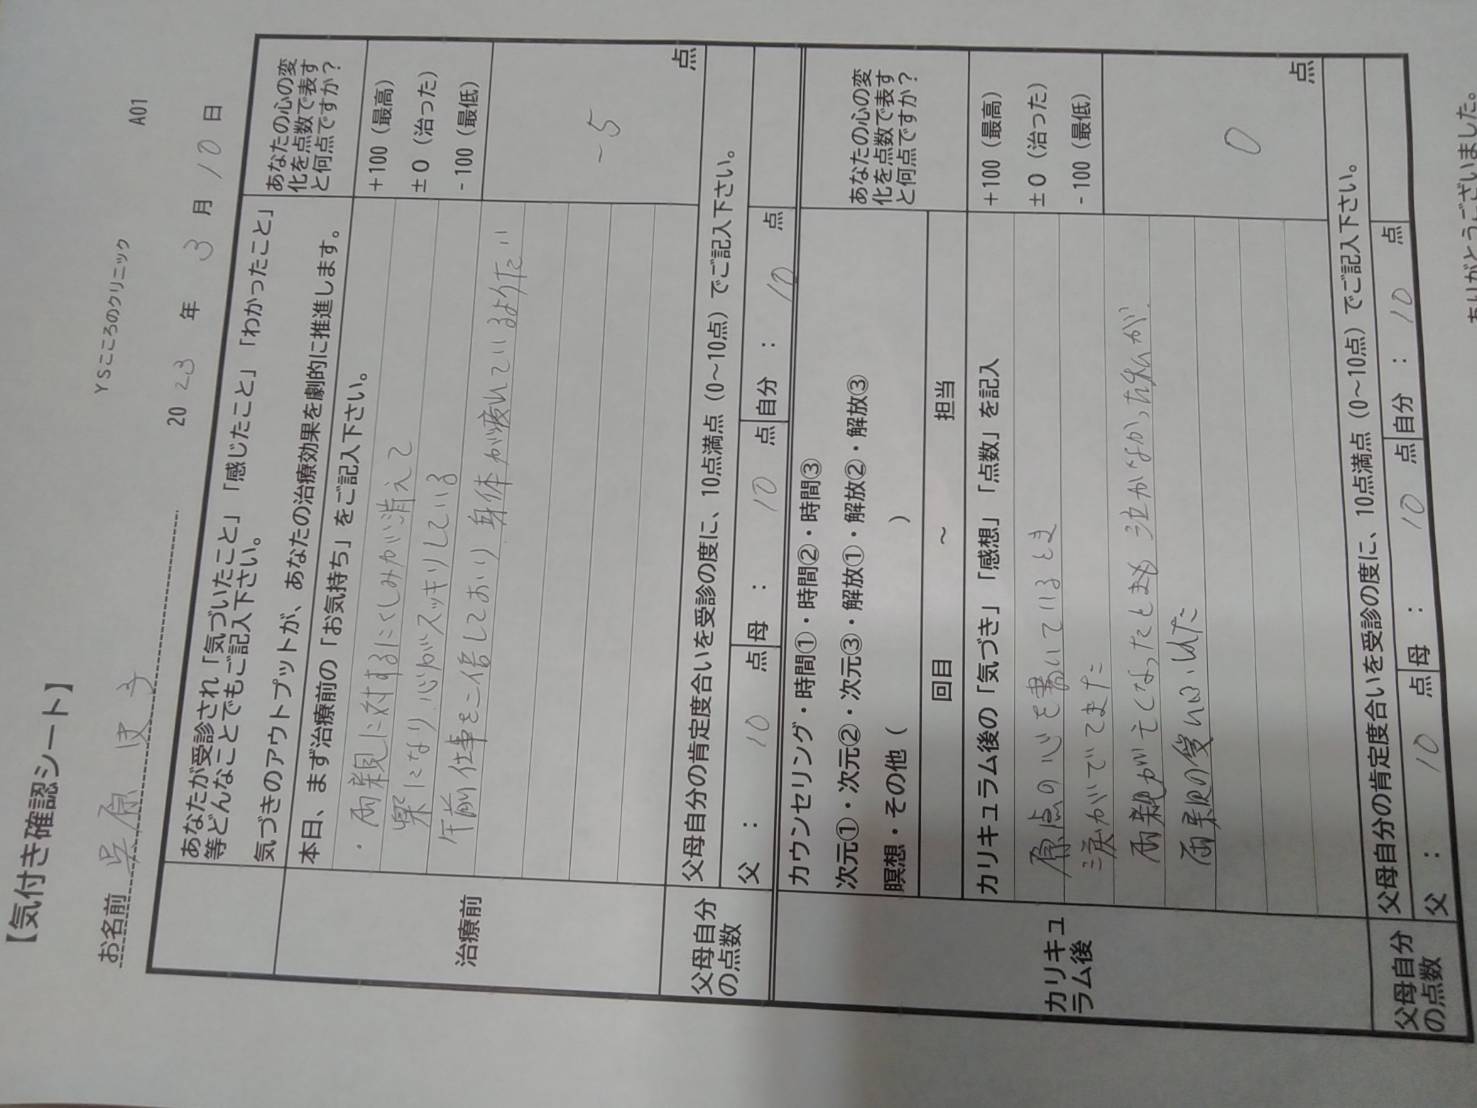 【気付き確認シート】
YSこころのクリニック A01
お名前 原 子
2023年 3月 10日
あなたが受診され「気づいたこと」「感じたこと」「わかったこと」
等どんなことでもご記入下さい。
気づきのアウトプットが、あなたの治療効果を劇的に推進します。
あなたの心の変
化を点数で表す
と何点ですか？
治療前
本日、まず治療前の「お気持ち」をご記入下さい。
・両親に対するにくしみが消えて
楽になり心がスッキリしている
午前仕事を二倍しており身体が疲れているようだ
+100（最高）
±0（治った）
-100（最低）
-5 点
父母自分
の点数
父母自分の肯定度合いを受診の度に、10点満点（0～10点）でご記入下さい。
父： 10 点 母： 10 点 自分： 10 点
カウンセリング・時間①・時間②・時間③
次元①・次元②・次元③・解放①・解放②・解放③
瞑想・その他（ ）
回目 ～ 担当
あなたの心の変
化を点数で表す
と何点ですか？
カリキュ
ラム後
カリキュラム後の「気づき」「感想」「点数」を記入
原点の心を書いているとき
涙がでてきた
両親が亡くなったときも泣かなかった私が
両親の愛
+100（最高）
±0（治った）
-100（最低）
0 点
父母自分
の点数
父母自分の肯定度合いを受診の度に、10点満点（0～10点）でご記入下さい。
父： 10 点 母： 10 点 自分： 10 点
ありがとうございました。